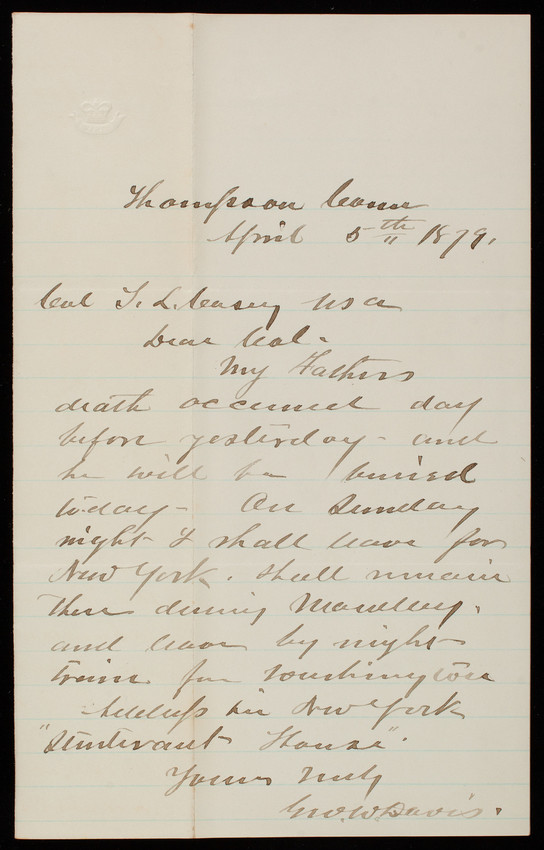 Thompson Conn
April 5th 1879.
Col T. L. Casey USA
Dear Col -
My Fathers
death occurred day
before yesterday - and
he will be buried
to-day - On Sunday
night I shall leave for
New York. Shall remain
there during Monday.
and leave by night
train for Washington
Address in New York
"Sturtevant House".
Yours truly
Geo. W. Davis.